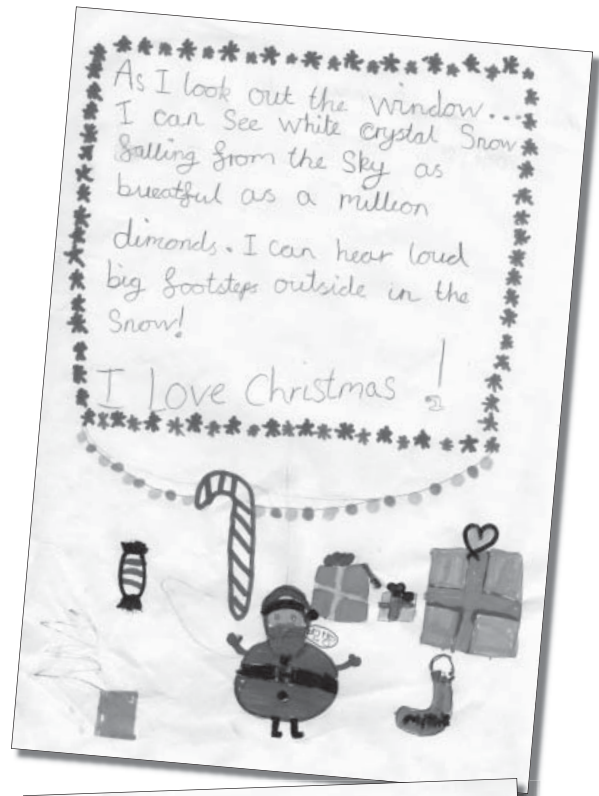 As I look out the window...
I can See white crystal Snow
falling from the Sky as
bueatful as a million
dimonds. I can hear loud
big footsteps outside in the
Snow!
I Love Christmas !